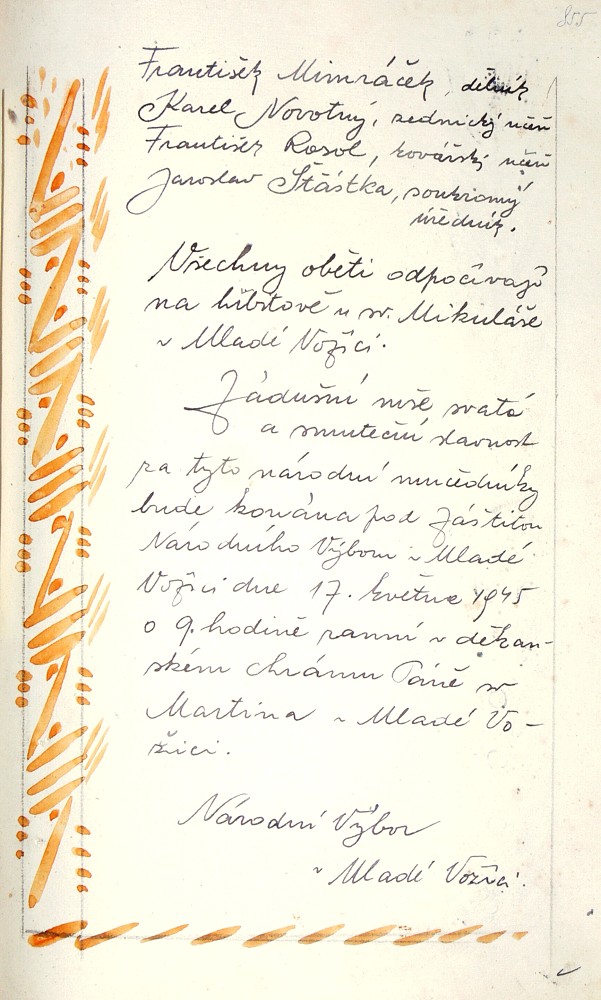 855
František Mimráček, dělník
Karel Novotný, zednický učeň
František Rosol, kovářský učeň
Jaroslav Šťástka, soukromý
úředník.
Všechny oběti odpočívají
na hřbitově u sv. Mikuláše
v Mladé Vožici.
Zádušní mše svatá
a smuteční slavnost
za tyto národní mučedníky
bude konána pod záštitou
Národního Výboru v Mladé
Vožici dne 17. května 1945
o 9. hodině ranní v děkan-
ském chrámu Páně sv
Martina v Mladé Vo-
žici.
Národní Výbor
v Mladé Vožici.